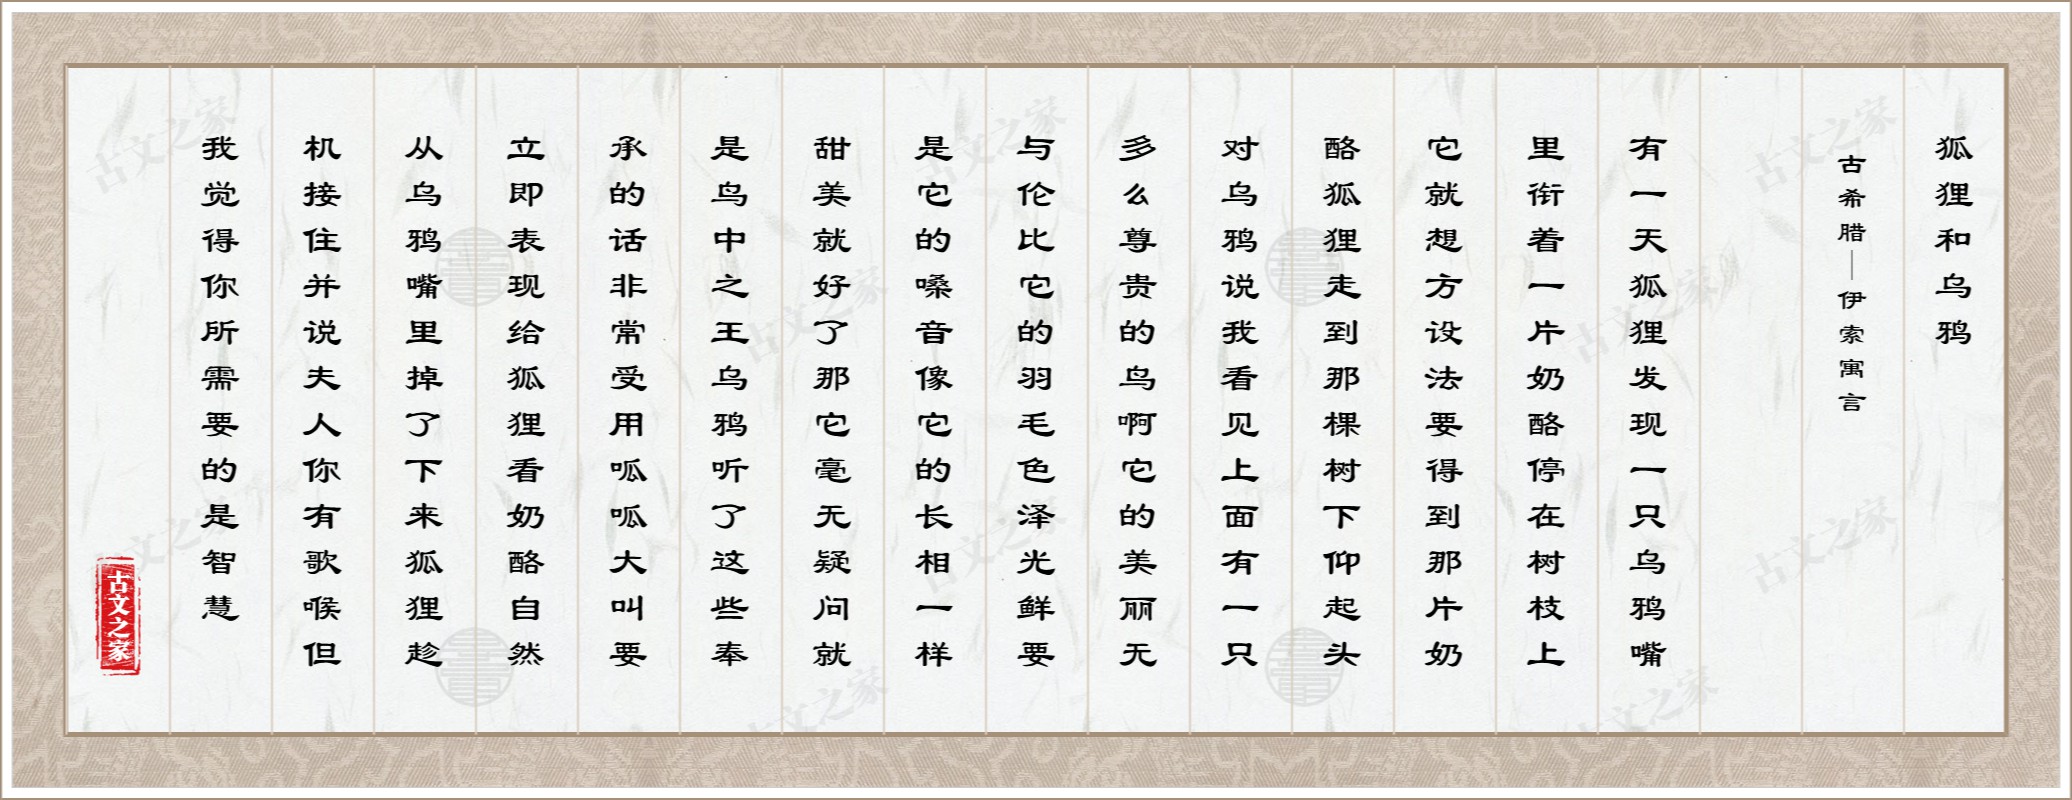 狐狸和乌鸦
古希腊—伊索寓言
有一天狐狸发现一只乌鸦嘴
里衔着一片奶酪停在树枝上
它就想方设法要得到那片奶
酪狐狸走到那棵树下仰起头
对乌鸦说我看见上面有一只
多么尊贵的鸟啊它的美丽无
与伦比它的羽毛色泽光鲜要
是它的嗓音像它的长相一样
甜美就好了那它毫无疑问就
是鸟中之王乌鸦听了这些奉
承的话非常受用呱呱大叫要
立即表现给狐狸看奶酪自然
从乌鸦嘴里掉了下来狐狸趁
机接住并说夫人你有歌喉但
我觉得你所需要的是智慧
古文之家